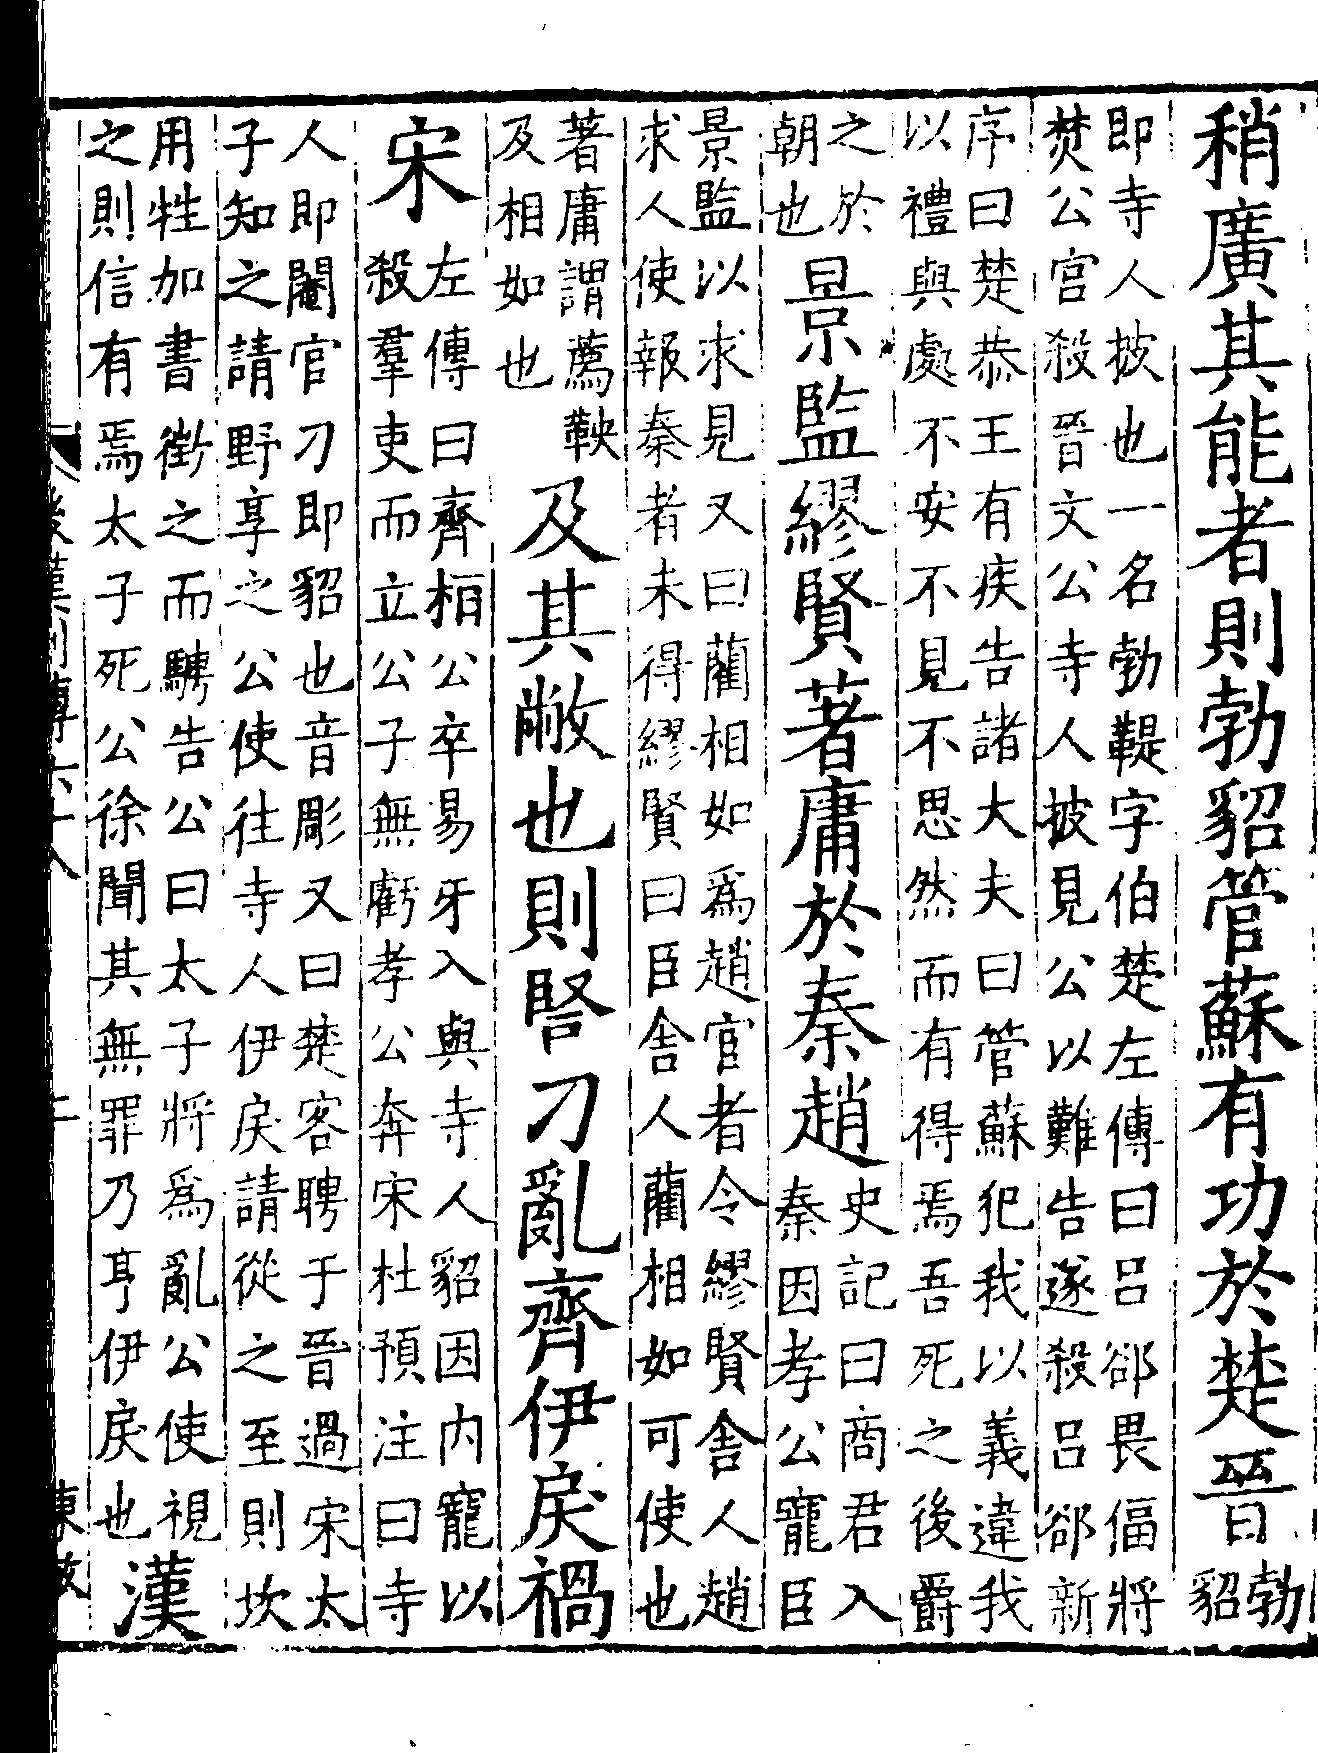 稍廣其能者則勃貂管蘇有功於楚晉勃
貂
即寺人披也一名勃鞮字伯楚左傳曰呂郤畏偪將
焚公宮殺晉文公寺人披見公以難告遂殺呂郤新
序曰楚恭王有疾告諸大夫曰管蘇犯我以義違我
以禮與處不安不見不思然而有得焉吾死之後爵
之於
朝也
景監繆賢著庸於秦趙
史記曰商君入
秦因孝公寵臣
景監以求見又曰藺相如爲趙官者令繆賢舍人趙
求人使報秦者未得繆賢曰臣舍人藺相如可使也
著庸謂薦鞅
及相如也
及其敝也則豎刁亂齊伊戾禍
宋
左傳曰齊桓公卒易牙入與寺人貂因内寵以
殺羣吏而立公子無虧孝公奔宋杜預注曰寺
人即閹官刁即貂也音彫又曰楚客聘于晉過宋太
子知之請野享之公使往寺人伊戾請從之至則坎
用牲加書徵之而騁告公曰太子將爲亂公使視
之則信有焉太子死公徐聞其無罪乃亨伊戾也
漢